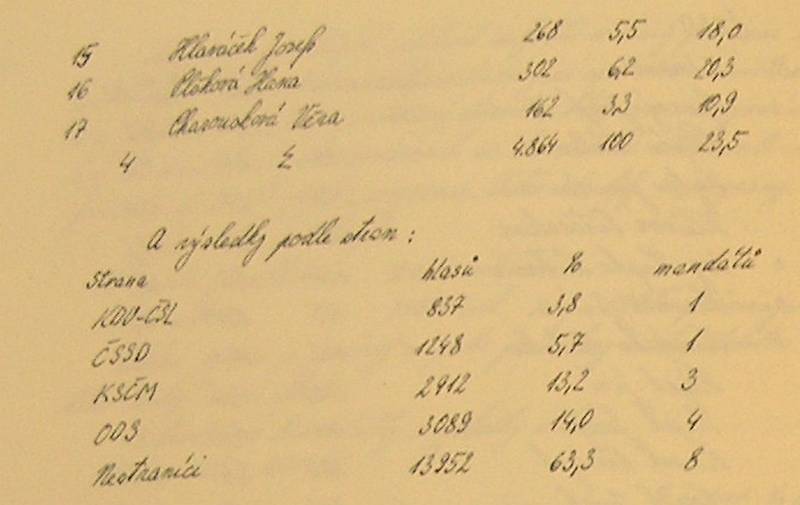 15 Hlaváček Josef 268 5,5 18,0
16 Plšková Hana 302 6,2 20,3
17 Charousková Věra 162 3,3 10,9
4 Σ 4.864 100 23,5
A výsledky podle stran :
Strana hlasů % mandátů
KDU-ČSL 837 3,8 1
ČSSD 1248 5,7 1
KSČM 2912 13,2 3
ODS 3089 14,0 4
Nestraníci 13952 63,3 8